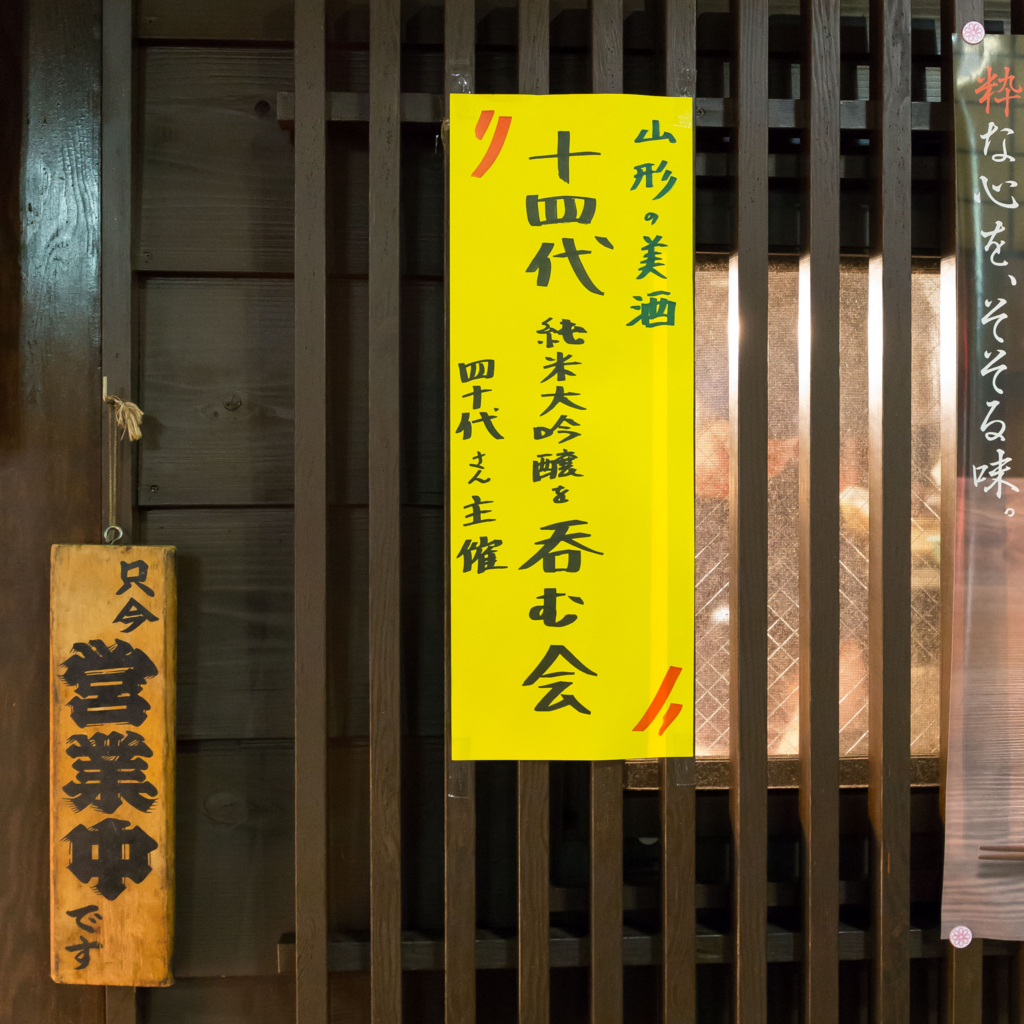 粋な心を、そそる味。
山形の美酒
十四代 純米大吟醸を呑む会
四十代さん主催
只今
営業中
です